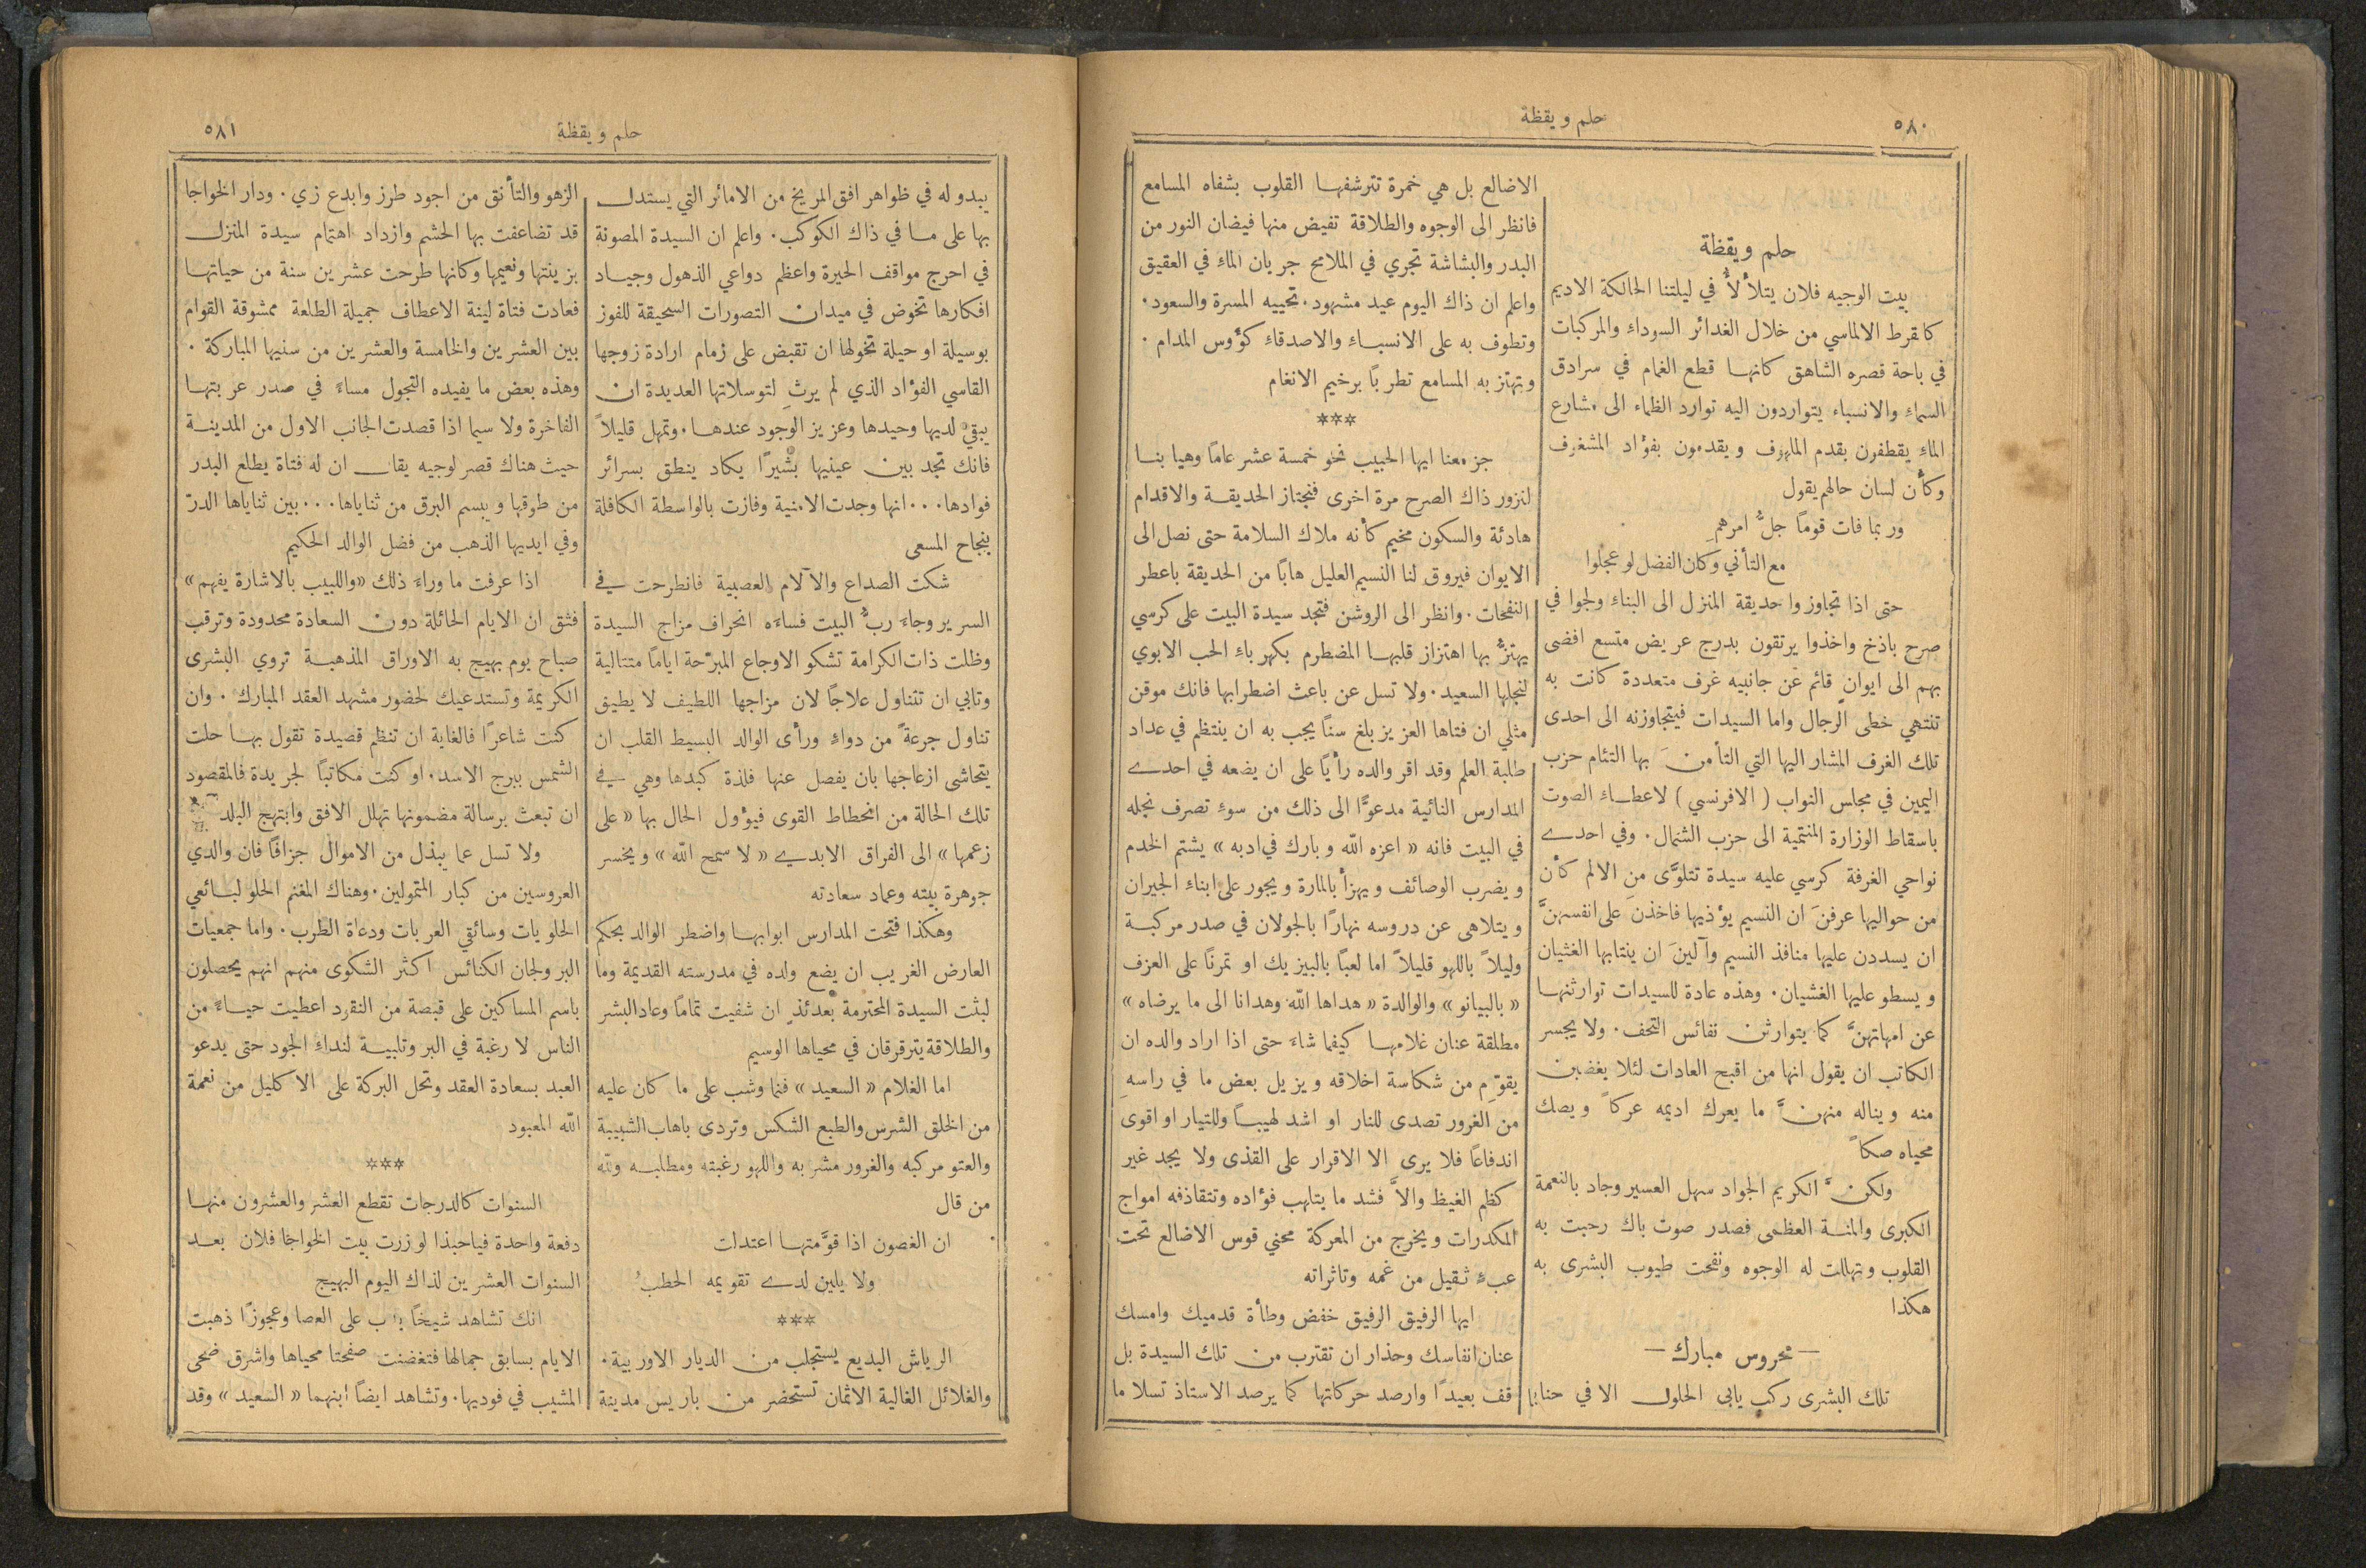 ٥٨٠
حلم و يقظة
حلم ويقظة
بيت الوجيه فلان يتلألأُ في ليلتنا الحالكة الاديم
كالقرط الالماسي من خلال الغدائر السوداءِ والمركبات
في باحة قصره الشاهق كانهـا قطع الغمام في سرادق
السماءِ والانسباء يتواردون اليه توارد الظماء الى مشارع
الماءِ يقطفون بقدم الملهوف ويقدمون بفؤاد المشغوف
وكأن لسان حالهم يقول
وربما فات قومًا جلُّ امرهمِ
مع التأني وكان الفضل لو عجلوا
حتى اذا تجاوزوا حديقة المنزل الى البناءِ ولجوا في
صرح باذخ واخذوا يرتقون بدرج عريض متسع افضى
بهم الى ايوانٍ قائم عن جانبيه غرف متعددة كانت به
تنتهي خطى الرجال واما السيدات فيتجاوزنه الى احدى
تلك الغرف المشار اليها التي التأمنَ بها التئام حزب
اليمين في مجلس النواب ( الافرنسي ) لاعطـاءِ الصوت
باسقاط الوزارة المنتمية الى حزب الشمال . وفي احدے
نواحي الغرفة كرسي عليه سيدة تتلوَّى من الالم كأن
من حواليها عرفنَ ان النسيم يؤذيها فاخذنَ على انفسهنَّ
ان يسددن عليها منافذ النسيم وآلينَ ان ينتابها الغثيان
ويسطو عليها الغشيان . وهذه عادة للسيدات توارثنهـا
عن امهاتهنَّ كما يتوارثن نفائس التحف . ولا يجسر
الكاتب ان يقول انها من اقبح العادات لئلا يغضبن
منه ويناله منهنَّ ما يعرك اديمه عركاً ويصك
محياه صكاً
ولكنَّ الكريم الجواد سهل العسير وجاد بالنعمة
الكبرى والمنـة العظمى فصدر صوت باك رحبت به
القلوب وتهللت له الوجوه ونفحت طيوب البشرى به
هكذا
— محروس مبارك —
تلك البشرى ركب يابى الحلول الا في حنايا
الاضالع بل هي خمرة تترشفهـا القلوب بشفاه المسامع
فانظر الى الوجوه والطلاقة تفيض منها فيضان النور من
البدر والبشاشة تجري في الملامح جريان الماءِ في العقيق
واعلم ان ذاك اليوم عيد مشهود . تحييه المسرة والسعود .
وتطوف به على الانسباءِ والاصدقاءِ كؤوس المدام .
وتهتز به المسامع تطربًا برخيم الانغام
***
جز معنا ايها الحبيب نحو خمسة عشر عامًا وهيا بنـا
لنزور ذاك الصرح مرة اخرى فنجتاز الحديقـة والاقدام
هادئة والسكون مخيم كأنه ملاك السلامة حتى نصل الى
الايوان فيروق لنا النسيم العليل هابًا من الحديقة باعطر
النفحات . وانظر الى الروشن فتجد سيدة البيت على كرسي
يهتزُّ بها اهتزاز قلبهـا المضطرم بكهرباءِ الحب الابوي
لنجلها السعيد . ولا تسل عن باعث اضطرابها فانك موقن
مثلي ان فتاها العزيز بلغ سنًا يجب به ان ينتظم في عداد
طلبة العلم وقد اقر والده رأيًا على ان يضعه في احدے
المدارس النائية مدعوًّا الى ذلك من سوءِ تصرف نجله
في البيت فانه « اعزه الله وبارك في ادبه » يشتم الخدم
ويضرب الوصائف ويهزأ بالمارة ويجور على ابناءِ الجيران
ويتلاهى عن دروسه نهارًا بالجولان في صدر مركبـة
وليلاً باللهو قليلاً اما لعبًا بالبيزيك او تمرنًا على العزف
« بالبيانو » والوالدة « هداها الله وهدانا الى ما يرضاه »
مطلقة عنان غلامهـا كيفما شاءَ حتى اذا اراد والده ان
يقوِّم من شكاسة اخلاقه ويزيل بعض ما في راسهِ
من الغرور تصدى للنار او اشد لهيبـاً وللتيار او اقوى
اندفاعًا فلا يرى الا الاقرار على القذى ولا يجد غير
كظم الغيظ والاَّ فشد ما يتلهب فؤاده وتتقاذفه امواج
المكدرات ويخرج من المعركة محني قوس الاضالع تحت
عبءِ ثقيل من غمه وتاثراته
ايها الرفيق الرفيق خفض وطأة قدميك وامسك
عنان انفاسك وحذار ان تقترب من تلك السيدة بل
قف بعيدًا وارصد حركاتها كما يرصد الاستاذ تسلا ما
حلم و يقظة
٥٨١
يبدو له في ظواهر افق المريخ من الامائر التي يستدل
بها على مـا في ذاك الكوكب . واعلم ان السيدة المصونة
في احرج مواقف الحيرة واعظم دواعي الذهول وجيـاد
افكارها تخوض في ميدان التصورات السحيقة للفوز
بوسيلة او حيلة تخولها ان تقبض على زمام ارادة زوجها
القاسي الفؤاد الذي لم يرثِ لتوسلاتها العديدة ان
يبقيَ لديها وحيدها وعزيز الوجود عندهـا . وتمهل قليلاً
فانك تجد بين عينيها بشيرًا يكاد ينطق بسرائر
فوادها ... انها وجدت الامنية وفازت بالواسطة الكافلة
بنجاح المسعى
شكت الصداع والآلام العصبية فانطرحت في
السرير وجاءَ ربُّ البيت فساءَه انحراف مزاج السيدة
وظلت ذات الكرامة تشكو الاوجاع المبرّحة ايامًا متتالية
وتابي ان تتناول علاجًا لان مزاجها اللطيف لا يطيق
تناول جرعةً من دواءٍ ورأى الوالد البسيط القلب ان
يتحاشى ازعاجها بان يفصل عنها فلذة كبدها وهي في
تلك الحالة من انحطاط القوى فيؤول الحال بها « على
زعمها » الى الفراق الابدي « لا سمح الله » ويخسر
جوهرة بيته وعماد سعادته
وهكذا فتحت المدارس ابوابهـا واضطر الوالد بحكم
العارض الغريب ان يضع ولده في مدرسته القديمة وما
لبثت السيدة المحترمة بعدئذٍ ان شفيت تمامًا وعاد البشر
والطلاقة يترقرقان في محياها الوسيم
اما الغلام « السعيد » فنما وشب على ما كان عليه
من الخلق الشرس والطبع الشكس وتردى باهاب الشبيبة
والعتو مركبه والغرور مشربه واللهو رغبته ومطلبـه ولله
من قال
ان الغصون اذا قوَّمتهـا اعتدلت
ولا يلين لدے تقويمه الحطبُ
***
الرياش البديع يستجلب من الديار الاوربية .
والغلائل الغالية الاثمان تستحضر من باريس مدينة
الزهو والتأنق من اجود طرز وابدع زي . ودار الخواجا
قد تضاعفت بها الحشم وازداد اهتمام سيدة المنزل
بزينتها ونعيمها وكانها طرحت عشرين سنة من حياتهـا
فعادت فتاة لينة الاعطاف جميلة الطلعة ممشوقة القوام
بين العشرين والخامسة والعشرين من سنيها المباركة .
وهذه بعض ما يفيده التجول مساءً في صدر عربتهـا
الفاخرة ولا سيما اذا قصدت الجانب الاول من المدينـة
حيث هناك قصر لوجيه يقال ان له فتاة يطلع البدر
من طوقها ويبسم البرق من ثناياها ... بين ثناياها الدرّ
وفي ايديها الذهب من فضل الوالد الحكيم
اذا عرفت ما وراءَ ذلك « واللبيب بالاشارة يفهم »
فثق ان الايام الحائلة دون السعادة محدودة وترقب
صباح يوم بهيج به الاوراق المذهبـة تروي البشرى
الكريمة وتستدعيك لحضور مشهد العقد المبارك . وان
كنت شاعرًا فالغاية ان تنظم قصيدة تقول بهـا حلت
الشمس ببرج الاسد . او كنت مكاتبًا لجريدة فالمقصود
ان تبعث برسالة مضمونها تهلل الافق وابتهج البلد
ولا تسل عما يبذل من الاموال جزافًا فان والدي
العروسين من كبار المتمولين . وهناك المغنم الحلو لبـائعي
الحلويات وسائقي العربات ودعاة الطرب . واما جمعيات
البر ولجان الكنائس اكثر الشكوى منهم انهم يحصلون
باسم المساكين على قبصة من النقود اعطيت حيـاءً من
الناس لا رغبة في البر وتلبيـة لنداءِ الجود حتى يدعو
العبد بسعادة العقد وتحل البركة على الاكليل من نعمة
الله المعبود
***
السنوات كالدرجات تقطع العشر والعشرون منهـا
دفعة واحدة فياحبذا لو زرت بيت الخواجا فلان بعـد
السنوات العشرين لذاك اليوم البهيج
انك تشاهد شيخًا على العصا وعجوزًا ذهبت
الايام بسابق جمالها فتغضنت صفحتا محياها واشرق ضحى
المشيب في فوديها . وتشاهد ايضًا ابنهما « السعيد » وقد